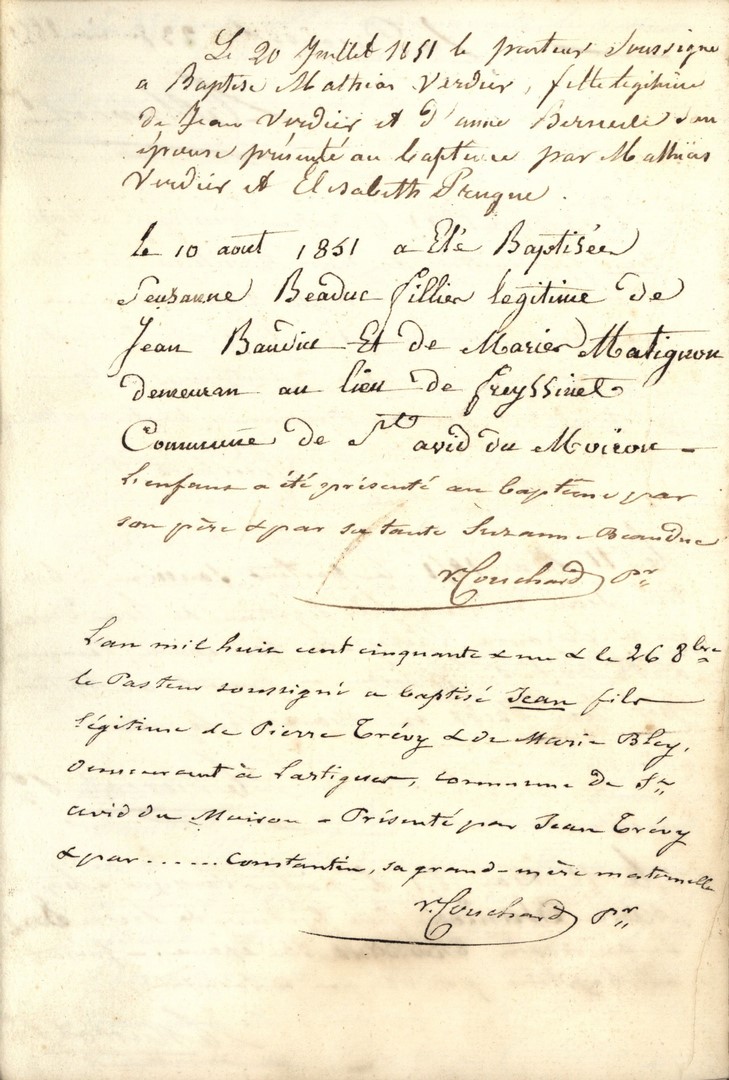 Le 20 Juillet 1851 le pasteur Soussigné
a Baptisé Mathias Verdier, fille legitime
de Jean Verdier et d'anne son
épouse présenté au baptême par Mathias
Verdier et Elisabeth Prugne.
le 10 aout 1851 a Eté Baptisée
Seuzanne Beaduc fillier legitime de
Jean Bauduc Et de Marier Matignon
demeuran au lieu de freyssinet
Commune de Ste avid du Moiron -
L'enfant a été présenté au baptême par
son père & par sa tante Suzanne Beauduc
r. Couchard Pr
L'an mil huit cent cinquante & un & le 26 8bre
le Pasteur soussigné a baptisé Jean fils
légitime de Pierre Trévy & de Marie Bley,
demeurant à Lartigues, commune de St
avid du Moiron - Présenté par Jean Trévy
& par ...... Constantin, sa grand-mère maternelle
r. Couchard Pr